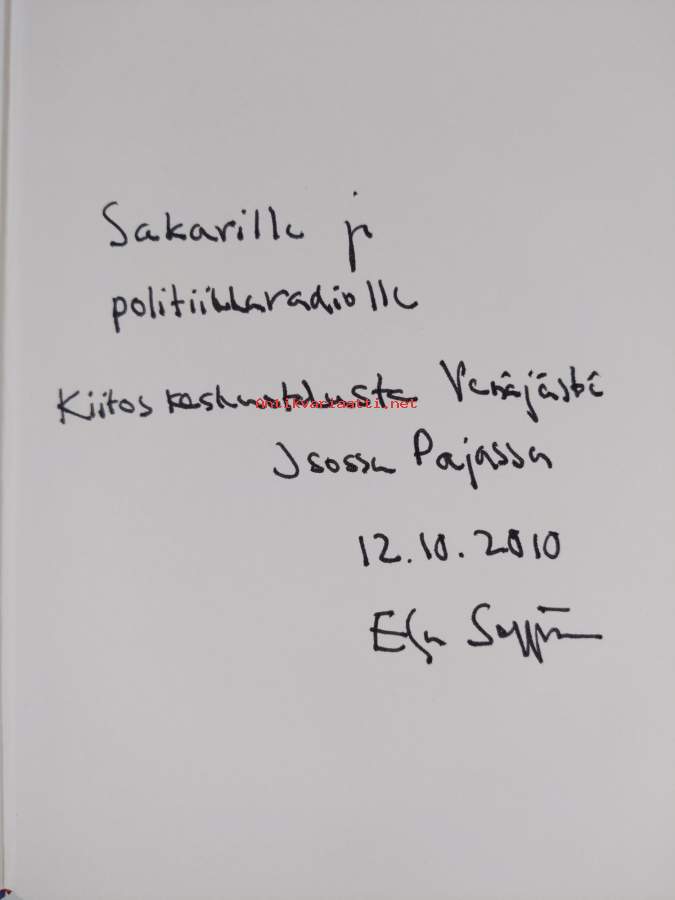 Sakarille ja
politiikkaradiolle
Kiitos keskustelusta Venäjästä
antikvariaatti.net
Isossa Pajassa
12.10.2010
Esa Seppänen